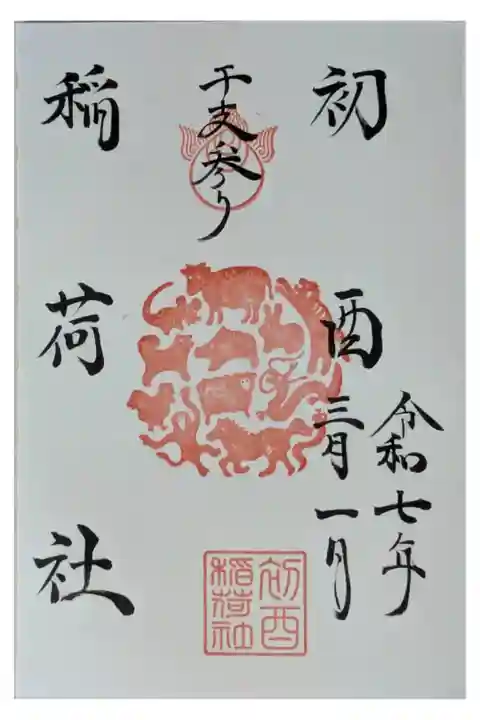 初酉
令和七年
三月一日
干支参り
稲荷社
初酉
稲荷社